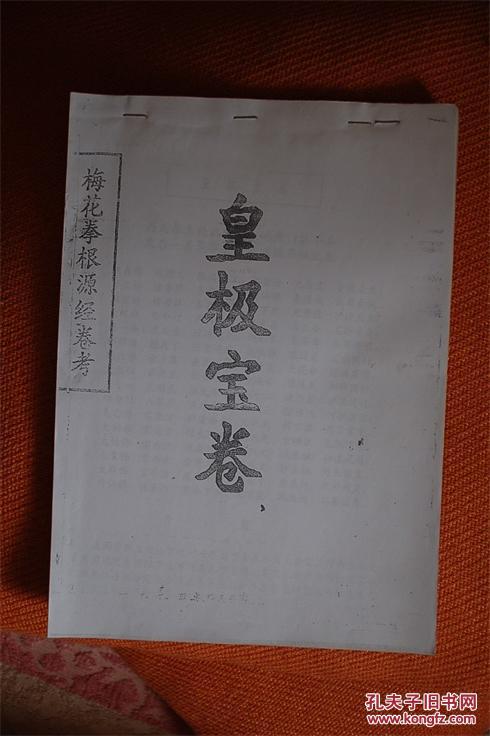 梅花拳根源经卷考
皇极宝卷
孔夫子旧书网
www.kongfz.com